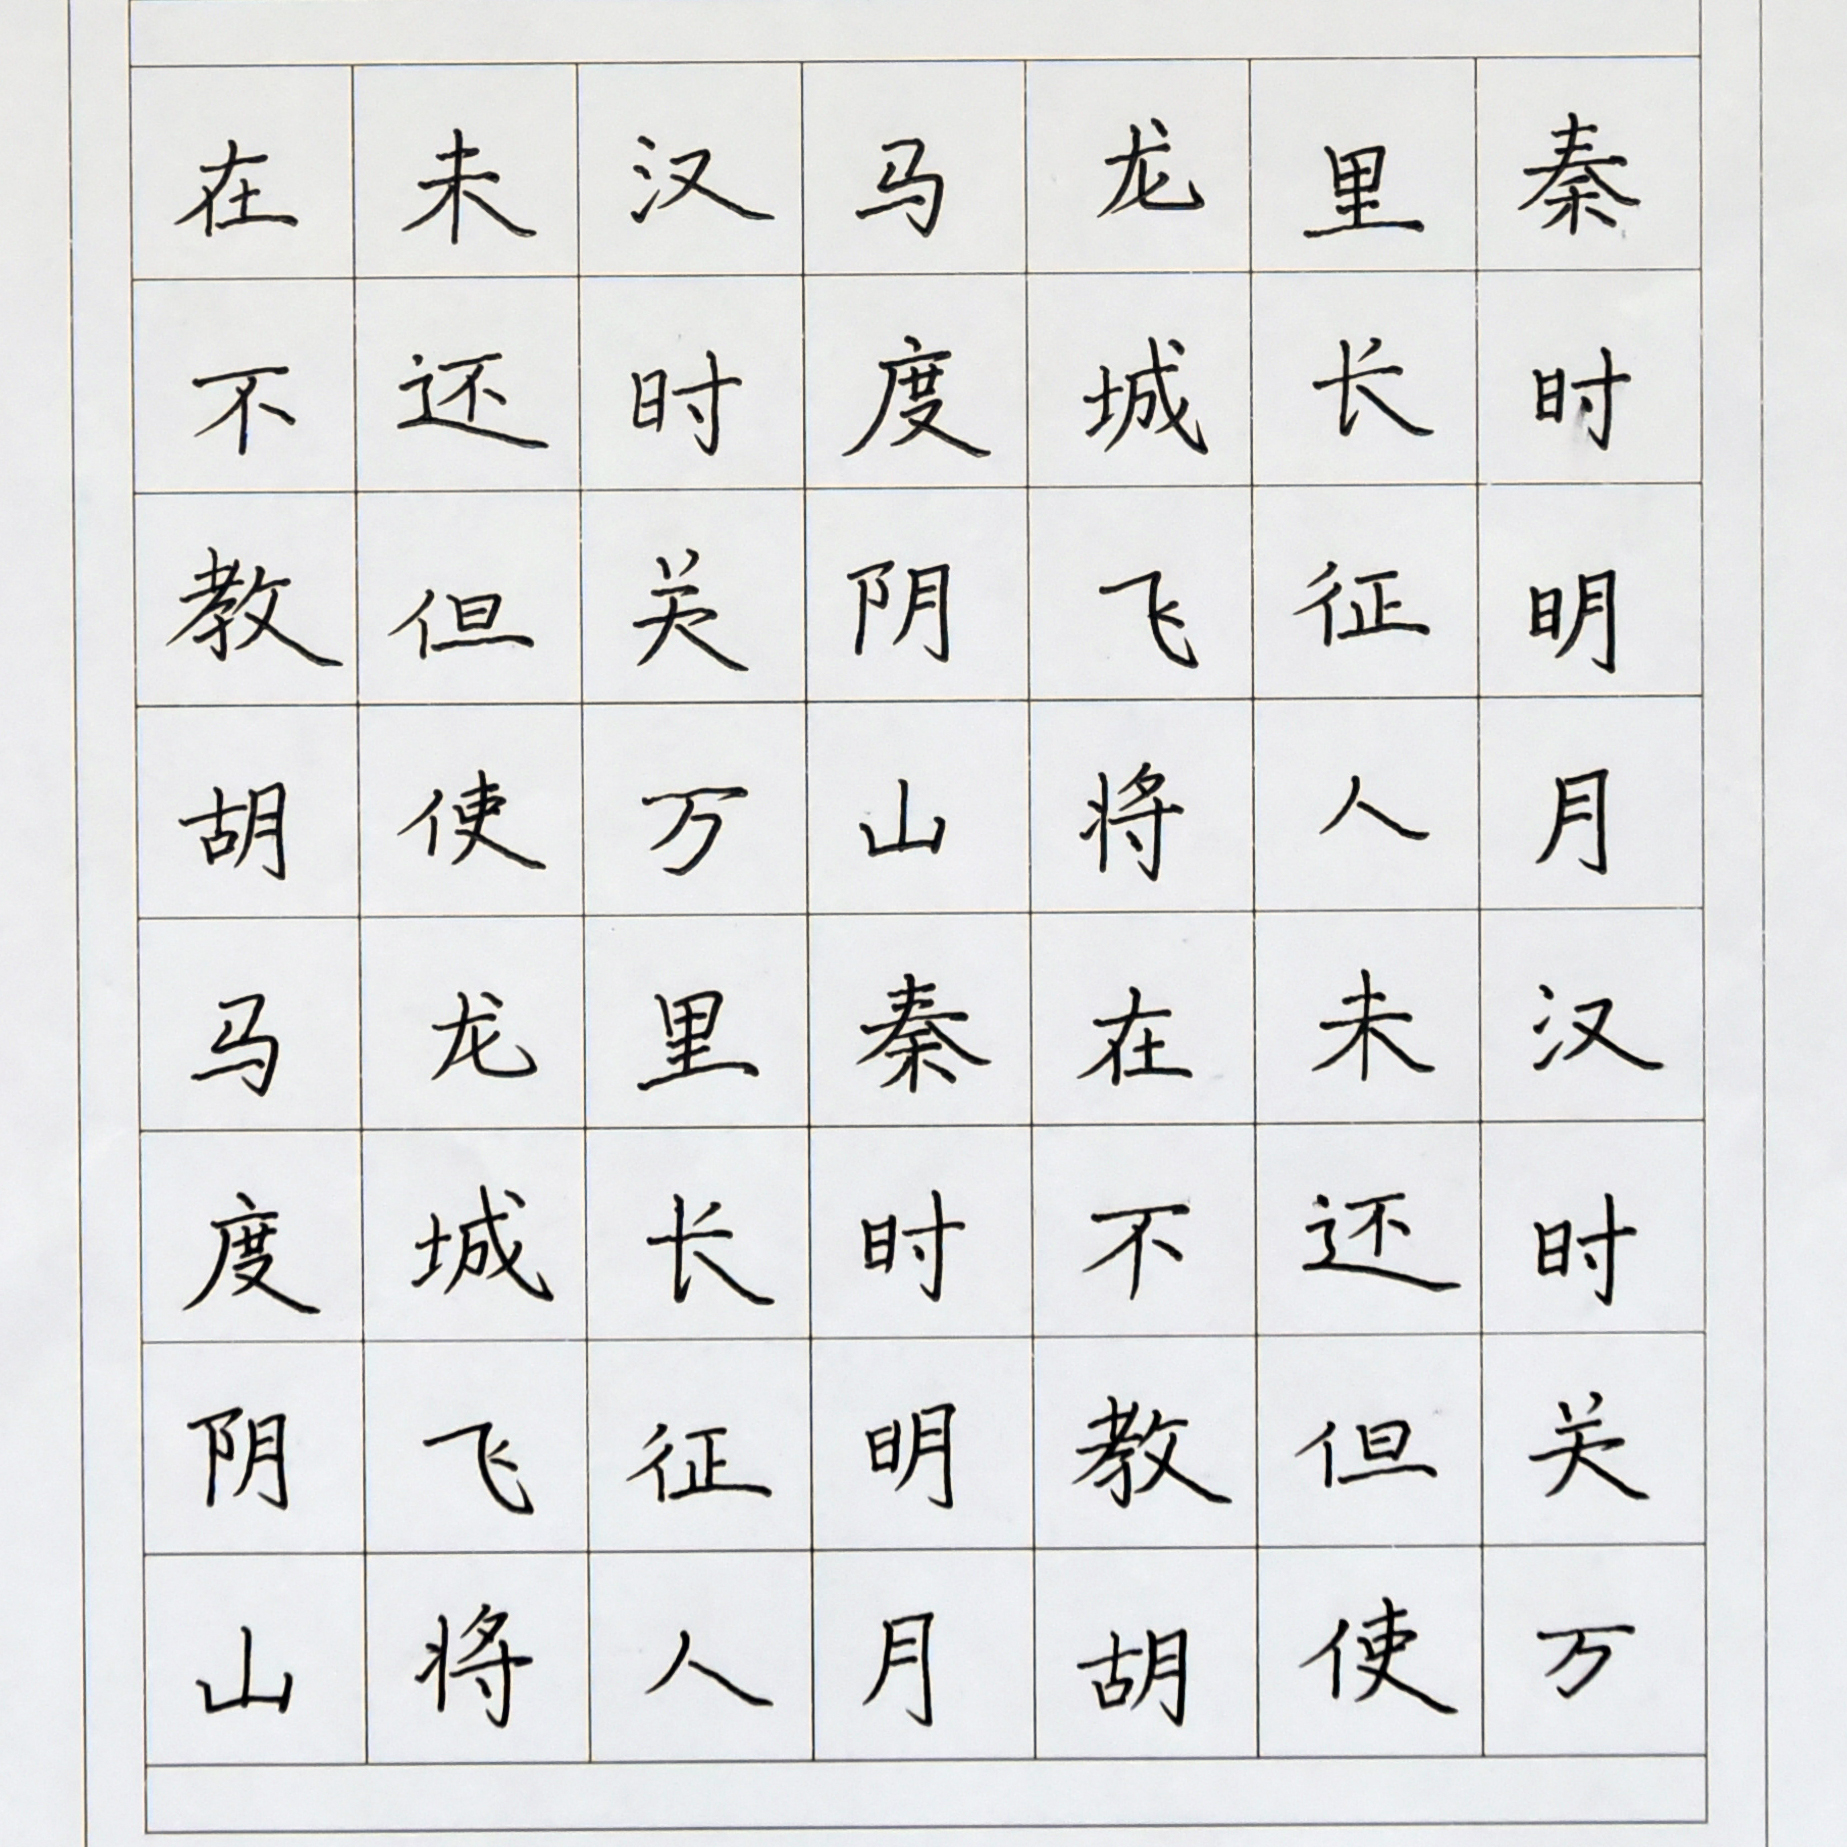 秦时明月汉时关万
里长征人未还但使
龙城飞将在不教胡
马度阴山秦时明月
汉时关万里长征人
未还但使龙城飞将
在不教胡马度阴山